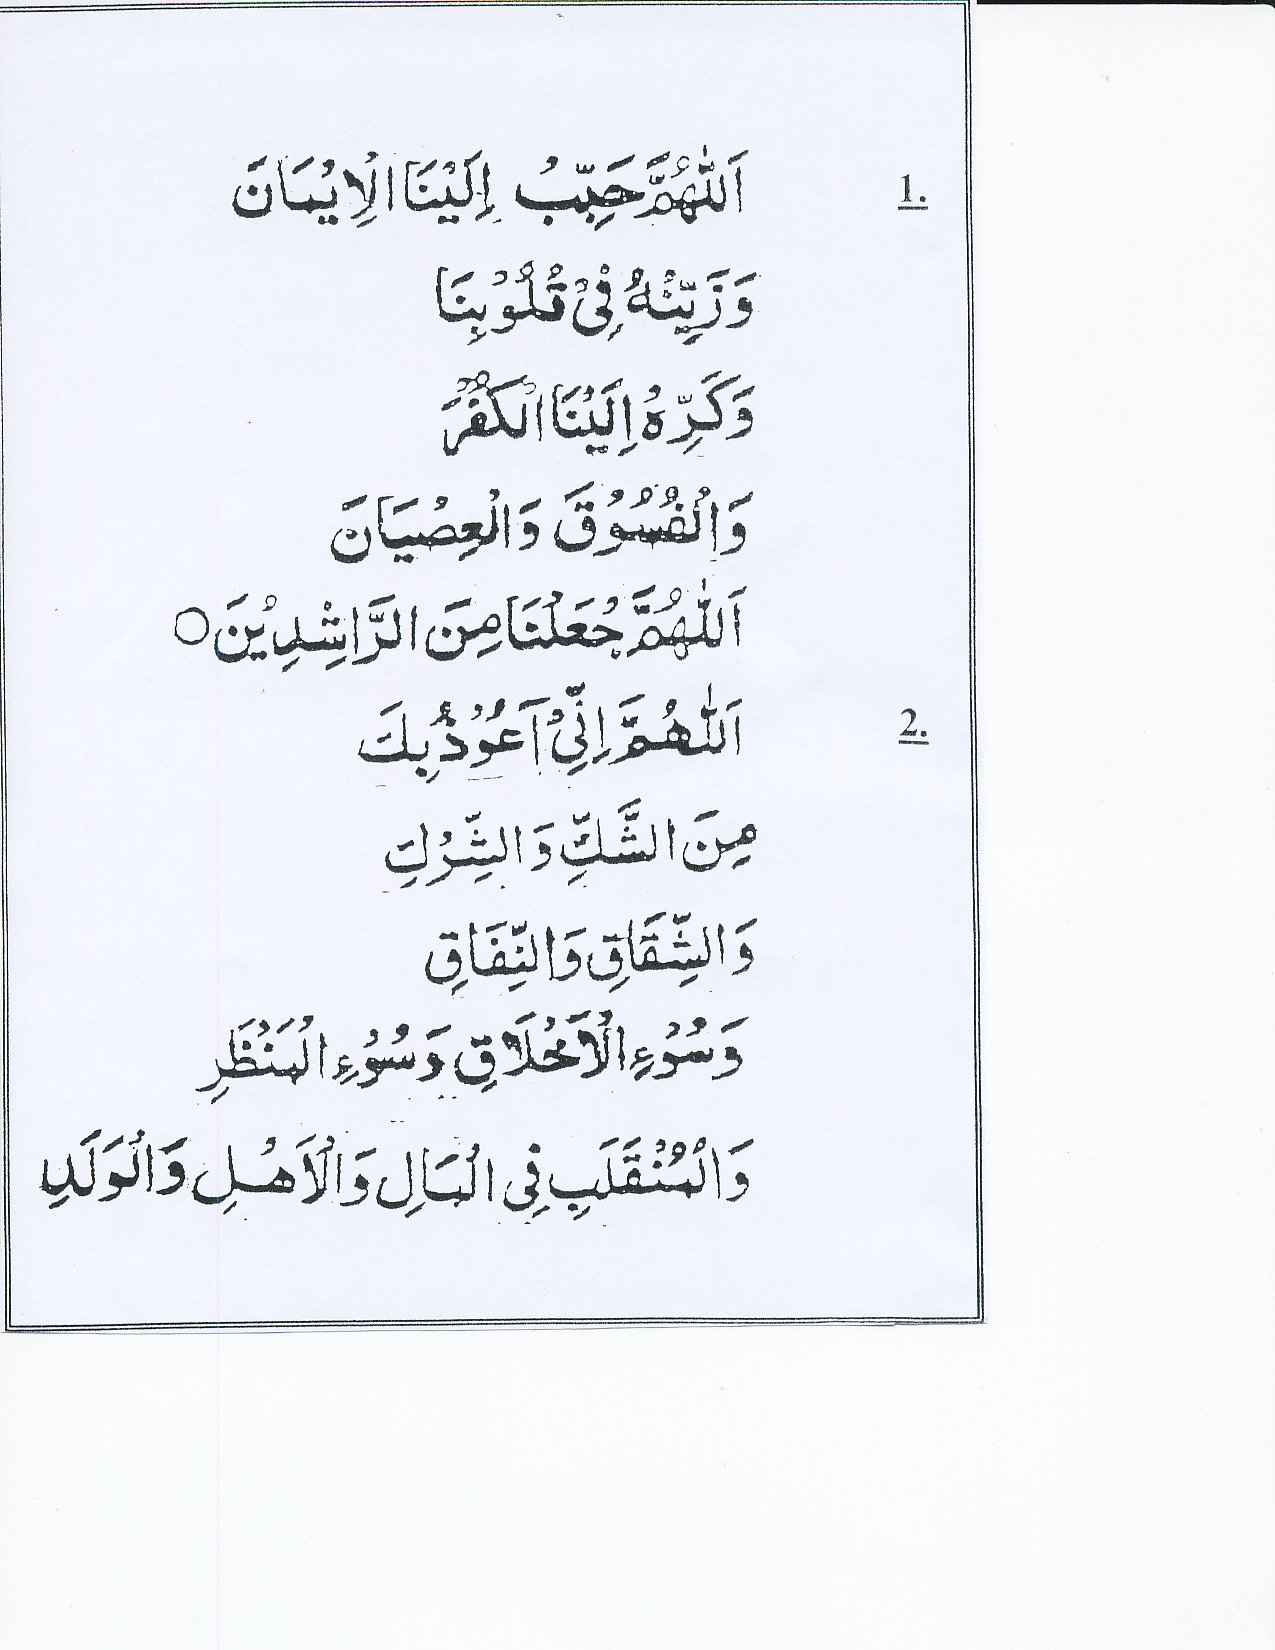 1. اَللّٰهُمَّ حَبِّبْ إِلَيْنَا الْاِيْمَانَ
وَزَيِّنْهُ فِيْ قُلُوْبِنَا
وَكَرِّهْ اِلَيْنَا الْكُفْرَ
وَالْفُسُوْقَ وَالْعِصْيَانَ
اَللّٰهُمَّ جْعَلْنَا مِنَ الرَّاشِدِيْنَ○
2. اَللّٰهُمَّ اِنِّيْ اَعُوْذُ بِكَ
مِنَ الشَّكِّ وَالشِّرْكِ
وَالشِّقَاقِ وَالنِّفَاقِ
وَسُوْءِ الْاَخْلَاقِ وَسُوْءِ الْمَنْظَرِ
وَالْمُنْقَلَبِ فِي الْمَالِ وَالْاَهْلِ وَالْوَلَدِ